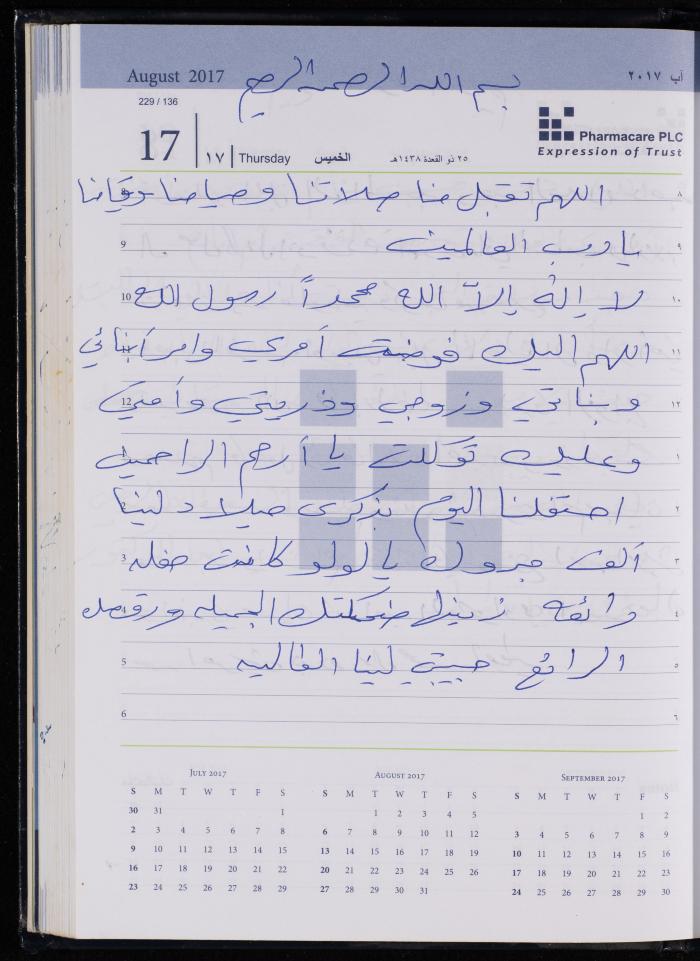 August 2017 بسم الله الرحمن الرحيم آب ٢٠١٧
229 / 136
17 | ١٧ | Thursday الخميس ٢٥ ذو القعدة ١٤٣٨هـ
Pharmacare PLC
Expression of Trust
اللهم تقبل منا صلاتنا وصيامنا وقيامنا ٨
9 يا رب العالمين ٩
10 لا إله إلاّ الله محمداً رسول الله ١٠
11 اللهم اليك فوضت أمري وامر أبنائي ١١
12 وبناتي وزوجي وذريتي وأمي ١٢
وعليك توكلت يا أرحم الراحمين ١
احتفلنا اليوم بذكرى ميلاد لينا ٢
3 ألف مبروك يا لولو كانت حفله ٣
رائعه زينها ضحكتك الجميله ورقصك ٤
5 الرائع حبيبتي لينا الغاليه ٥
6 ٦
July 2017
S M T W T F S
30 31 1
2 3 4 5 6 7 8
9 10 11 12 13 14 15
16 17 18 19 20 21 22
23 24 25 26 27 28 29
August 2017
S M T W T F S
1 2 3 4 5
6 7 8 9 10 11 12
13 14 15 16 17 18 19
20 21 22 23 24 25 26
27 28 29 30 31
September 2017
S M T W T F S
1 2
3 4 5 6 7 8 9
10 11 12 13 14 15 16
17 18 19 20 21 22 23
24 25 26 27 28 29 30